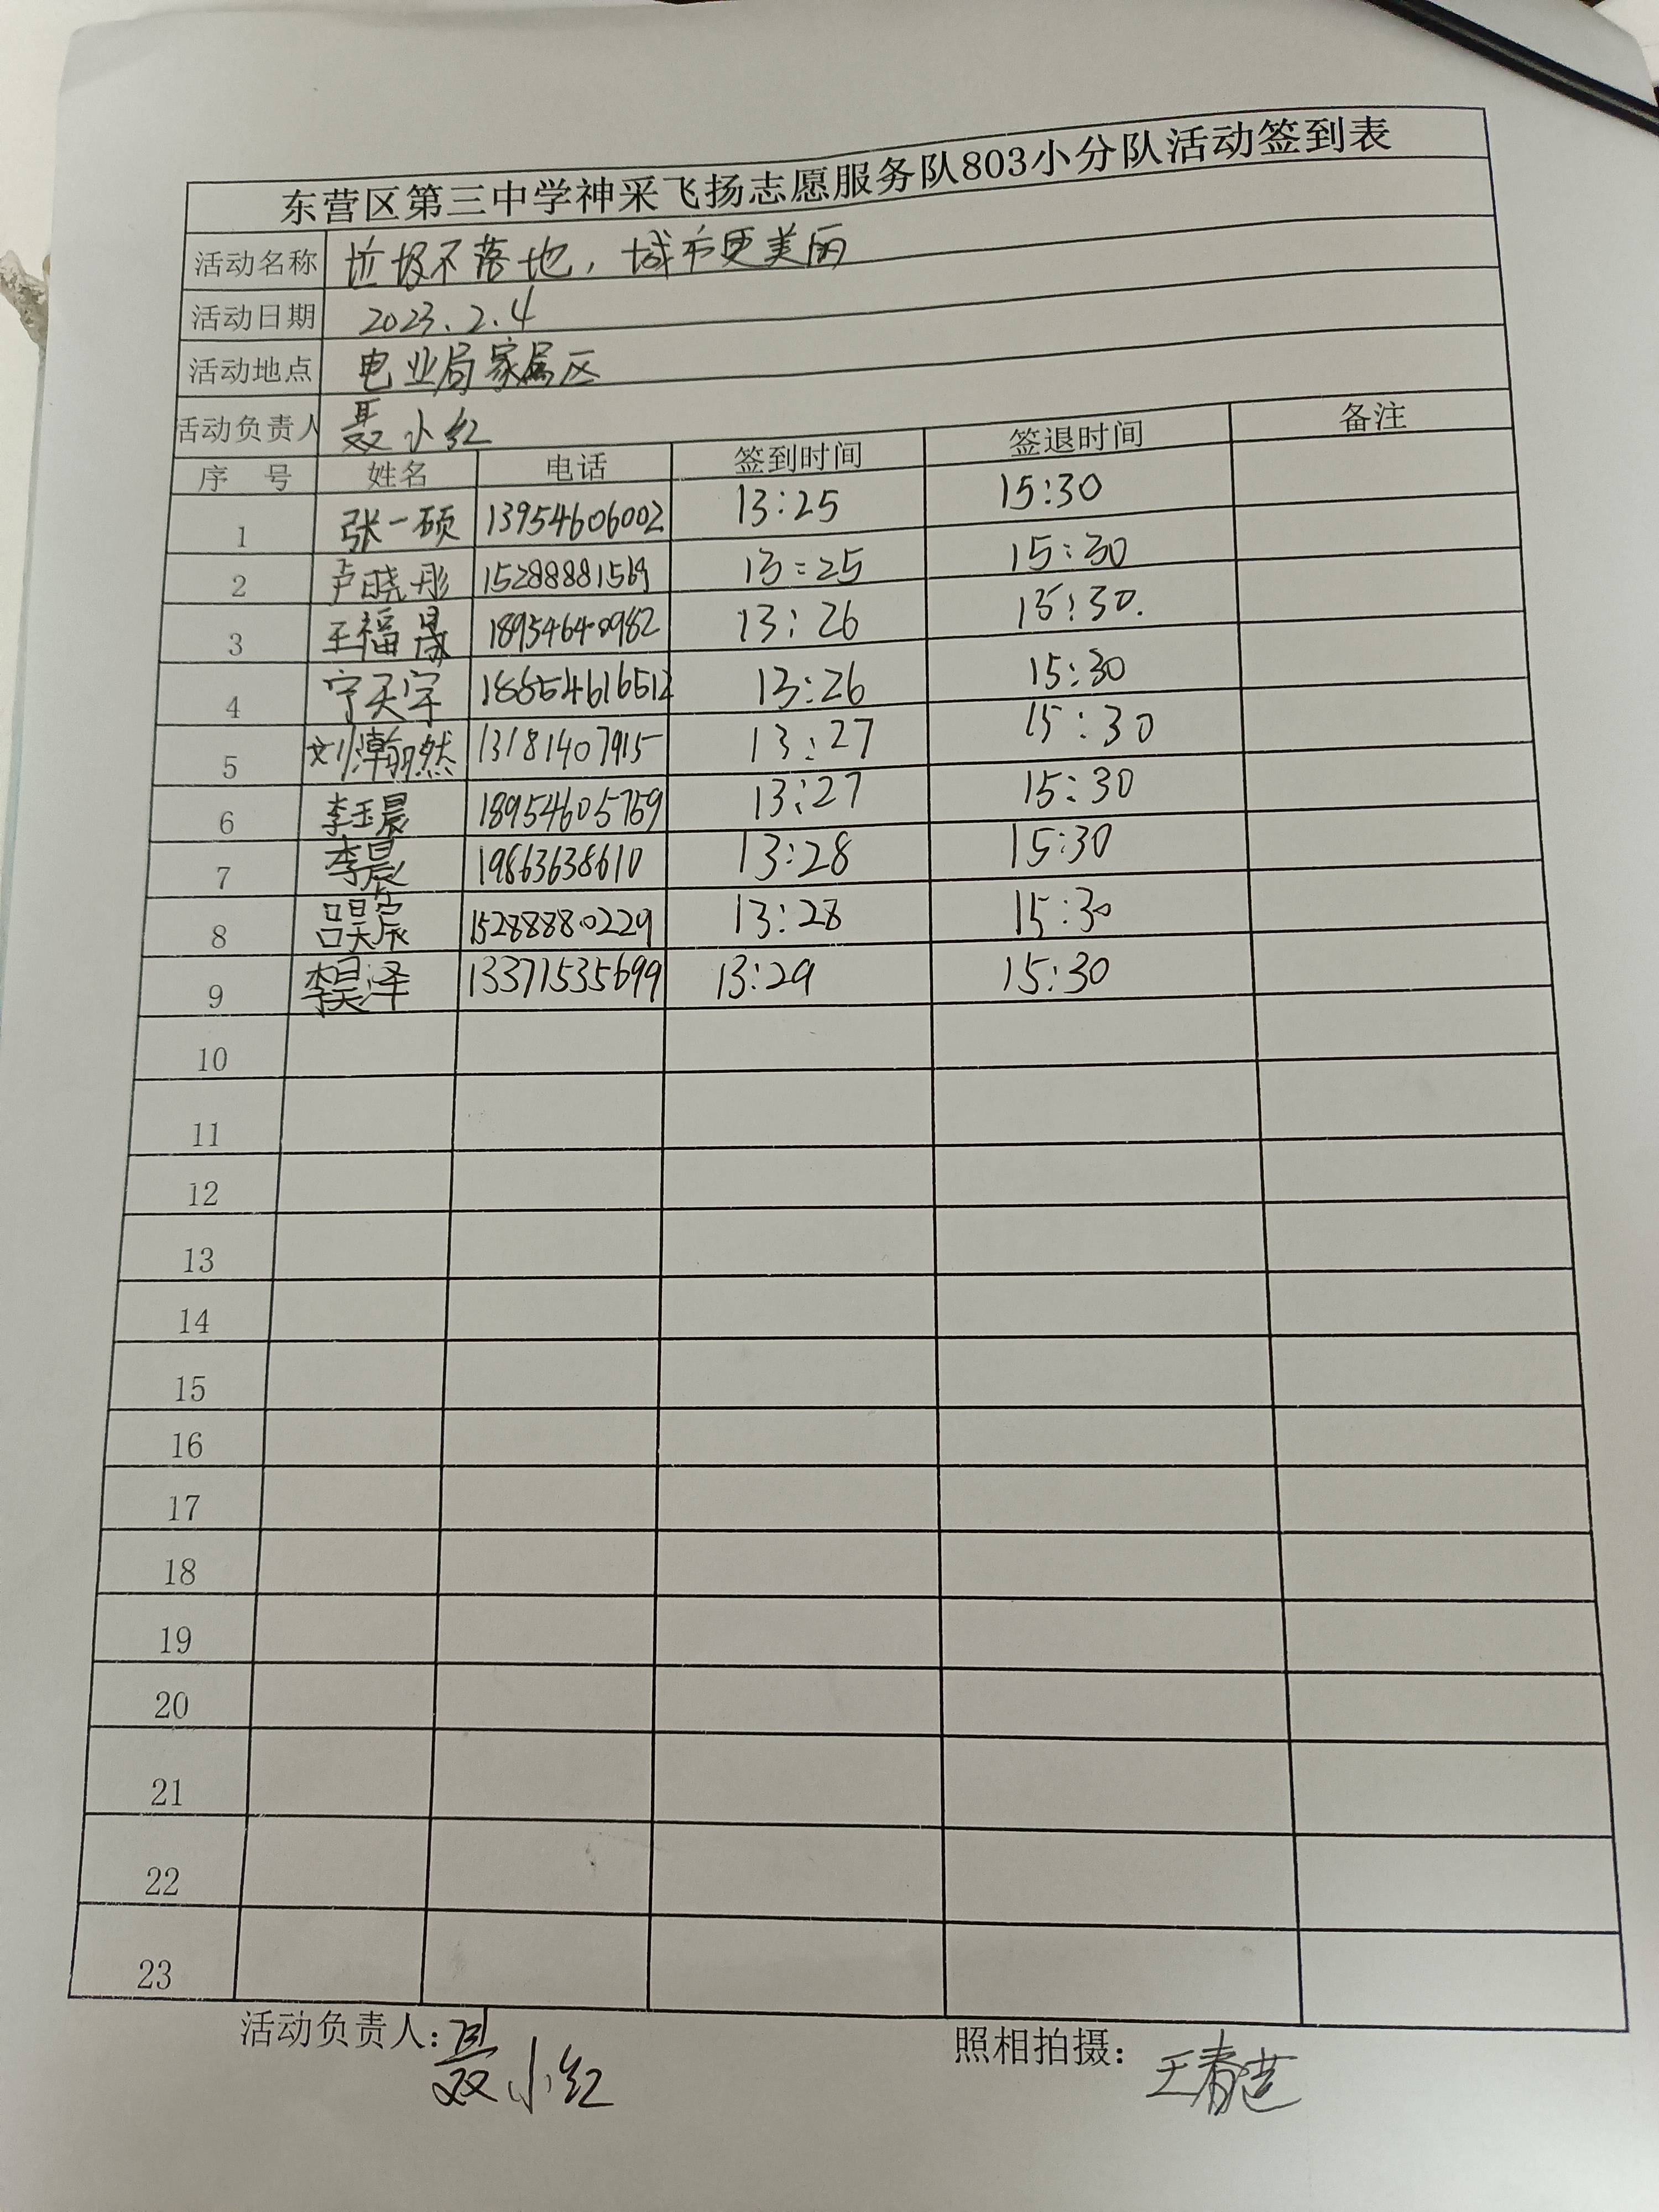 东营区第三中学神采飞扬志愿服务队803小分队活动签到表
活动名称 垃圾不落地，城市更美丽
活动日期 2023.2.4
活动地点 电业局家属区
活动负责人 聂小红
序 号 姓名 电话 签到时间 签退时间 备注
1 张一硕 13954606002 13:25 15:30
2 卢晓彤 15288881569 13:25 15:30
3 王福晟 18954640982 13:26 15:30.
4 宁天宇 13:26 15:30
5 刘瀚然 13181407915 13:27 15:30
6 李玉晨 18954605759 13:27 15:30
7 李晨 19863638610 13:28 15:30
8 吕昊宸 15288880229 13:28 15:30
9 李昊泽 13371535699 13:29 15:30
10
11
12
13
14
15
16
17
18
19
20
21
22
23
活动负责人：聂小红 照相拍摄：王春芸